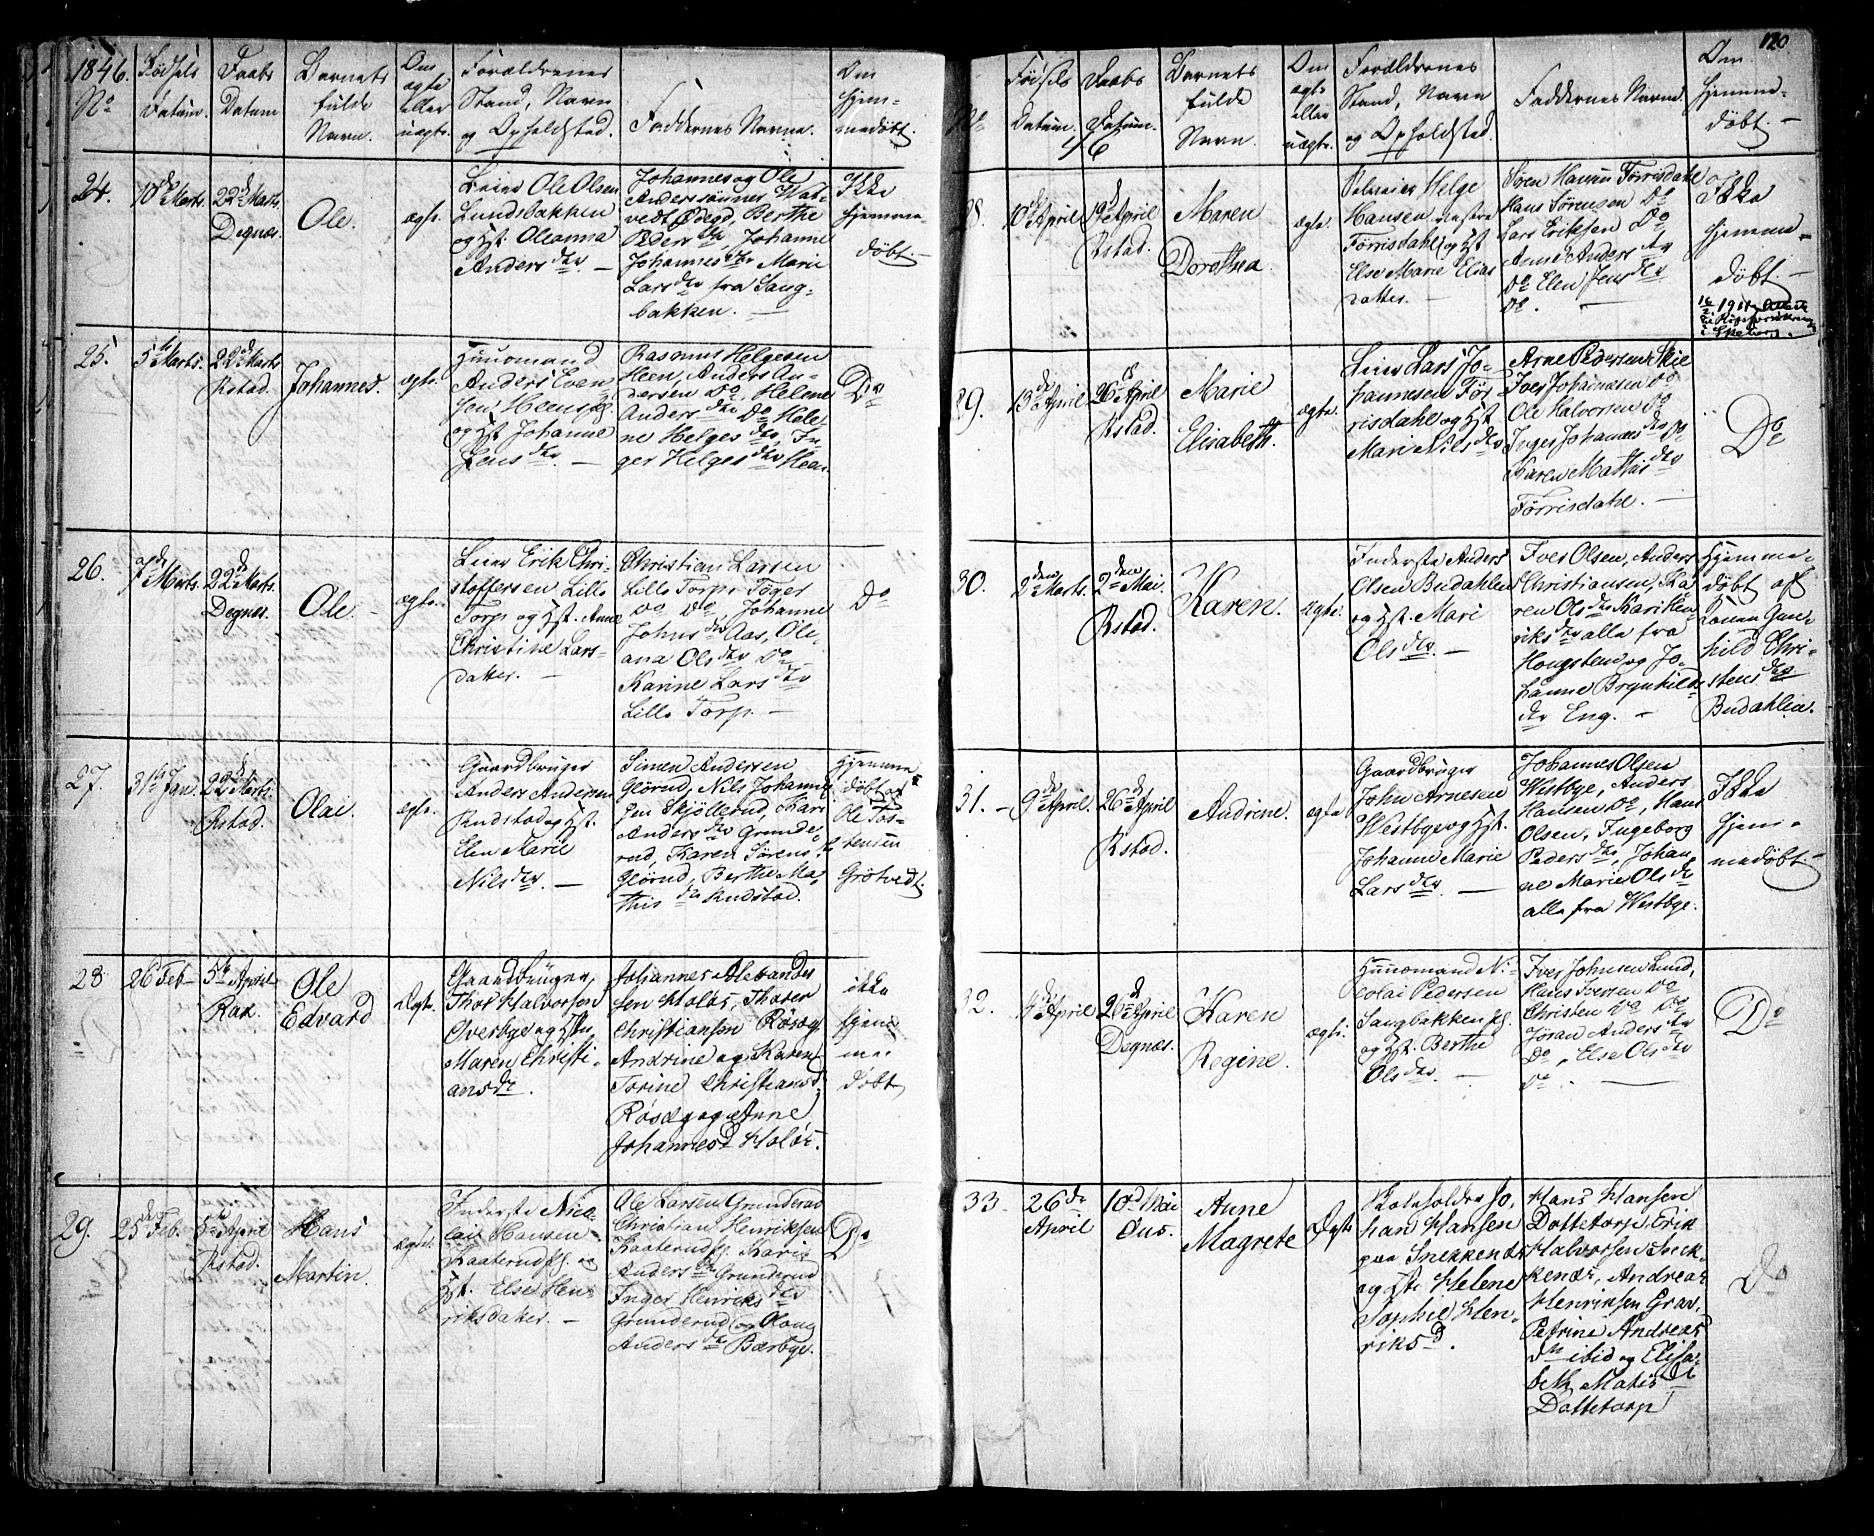 1846.
No
Fødsels
Datum.
Daabs
Datum
Barnets
fulde
Navn.
Om
ægte
eller
uægte.
Forældrenes
Stand, Navn
og Opholdsted.
Faddernes Navne.
Om
hjem-
medøbt.
24.
10de Marts.
22de Marts.
Degnes.
Ole.
ægte.
Leier Ole Olsen
Lundsbakken
og Hst. Oleanna
Andersdtr. —
Johannes og Ole
Anderssønner Wat-
vedt Ødegd, Berthe
Pedersdtr, Johanne
Johannesdtr Marie
Larsdtr fra Sang-
bakken. —
Ikke
hjemme-
døbt. —
25.
5te Marts.
22de Marts
Rstad.
Johannes.
ægte.
Huusmand
Anders Even-
sen Heenseg.
og Hst Johanne
Jensdtr. —
Rasmus Helgesen
Heen, Anders An-
dersen Do, Helene
Andersdtr Do Hele-
ne Helgesdtr, In-
ger Helgesdtr Heen
Do
26.
7de Marts.
22de Marts.
Degnes.
Ole.
ægte.
Leier Erik Chri-
stoffersen Lille
Torp og Hst. Anne
Christine Lars-
datter. —
Christian Larsen
Lille Torp, Tøger
Do Do, Johanne
Johnsdtr Aas, Ole-
ana Olsdtr Do
Karine Larsdtr
Lille Torp. —
Do
27.
31te Jan.
22de Marts.
Rstad.
Olai.
ægte.
Gaardbruger
Anders Andersen
Rudstad og Hst.
Elen Marie
Nilsdtr. —
Simen Andersen
Glørud, Nils Johanne-
sen Skjøllerud, Kari
Andersdtr Grunde-
rud, Karen Sørensdtr
Glørud, Berthe Ma-
thisdtr Rudstad.
Hjemme-
døbt af
Ole Tos-
tensen
Grøtvedt.
28
26 Feb
5te April
Rak.
Ole
Edvard
Ægte.
Gaardbruger,
Thor Halvorsen
Overbye og Hstu
Maren Christi-
ansdr.
Johannes Alexander
sen Holøs, Thorer
Christiansen Røseg
Andrine og Karen
Torine Christiansd.
Røseg og Anne
Johannesd Holøs.
ikke
hjem
me-
døbt
29.
25de Feb.
5te April
Rstad.
Hans
Martin.
ægte.
Inderste Nico-
lai Hansen
Kaaterudeg. og
Hst. Else Hen-
riksdatter. —
Ole Larsen Grunderud
Christian Henriksen
Kaaterudeg. Kari
Andersdtr Grunderud
Inger Henriksdtr
Grunderud og Oloug
Andersdtr Bærbye.
Do
120
No
Fødsels
Datum.
46
Daabs
Datum.
Barnets
fulde
Navn.
Om
ægte
eller
uægte.
Forældrenes
Stand, Navn
og Opholdsted
Faddernes Navne.
Om
hjemme-
døbt. —
28.
10de April
19de April
Rstad.
Maren
Dorothea.
ægte.
Helge
Hansen nestre
Tørrisdahl og Hst
Else Marie Elias
datter. —
Søren Hansen Tørrisdahl
Hans Sørensen Do
Lars Eriksen Do
Anne Andersdtr
Do Elen Jensdtr
Do. —
Ikke
hjemme-
døbt. —
29.
13de April
26de April
Rstad.
Marie
Elisabeth.
ægte.
Leier Lars Jo-
hannesen Tør-
risdahl og Hst
Mari Nilsdtr
Arne Pedersen Skie
Iver Johannesen Do
Ole Halvorsen Do
Inger Johannesdtr Do
Karen Mathisdtr
Tørrisdahl. —
Do
30.
2den Marts.
2den Mai.
Rstad.
Karen.
ægte.
Inderste Anders
Olsen Budahlen
og Hst. Mari
Olsdtr. —
Iver Olsen, Anders
Christiansen, Ka-
ren Olsdtr Kari Hen-
riksdtr alle fra
Hougsten og Jo-
hanne Brynhilds
dtr Eng. —
Hjemme-
døbt af
Konen Gun-
hild Chri-
stensdtr
Budahlen.
31. —
9de April
26de April
Rstad.
Andrine.
ægte
Gaardbruger
John Arnesen
Westbye og Hst.
Johanne Marie
Larsdtr. —
Johannes Olsen
Westbye, Anders
Hansen Do, Hans
Olsen, Ingeborg
Pedersdtr, Johan-
ne Marie Olsdtr
alle fra Westbye.
Ikke
hjem-
medøbt —
32.
4de April
26de April
Degnes.
Karen
Regine.
ægte.
Huusmand Ni-
colai Pedersen
Sangbakken eg.
og Hst. Berthe
Olsdtr. —
Iver Johnsen Lund,
Hans Iversen Do
Christen Do Do
Jøran Andersdtr
Do, Else Olsdtr
Do. —
Do
33.
26de
April
10d Mai
Aas.
Anne
Magrete
Ægte
Skoleholder Jo-
han Hansen
paa Snekkenæs
og Hst Helene
Sophie Hen-
riksd.
Hans Hansen
Dottetorp Erik
Halvorsen Snek-
kenæs, Andreas
Henriksen Grav,
Petrine Andreas
dtr ibid og Elisa-
beth Matisdr
Dottetorp
Do